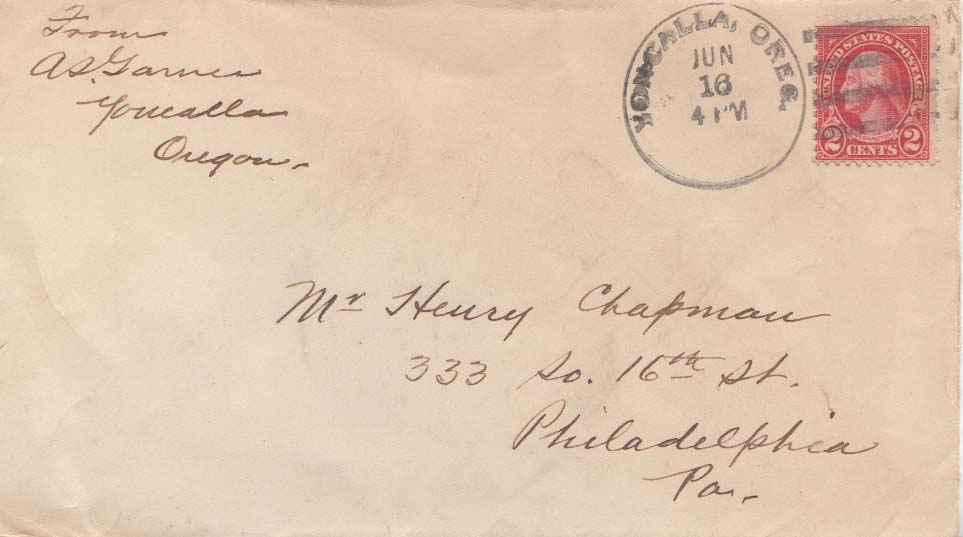 From
A.S. Garner
Yoncalla
Oregon.
YONCALLA, OREG.
JUN
16
4 PM
UNITED STATES POSTAGE
2 CENTS 2
Mr Henry Chapman
333 So. 16th St.
Philadelphia
Pa.